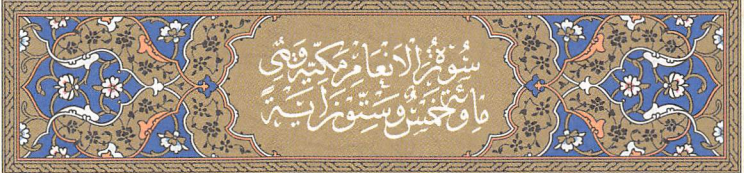 سُورَةُ الْأَنْعَامِ مَكِّيَّةٌ وَهِيَ
مِائَةٌ وَخَمْسٌ وَسِتُّونَ آيَةً